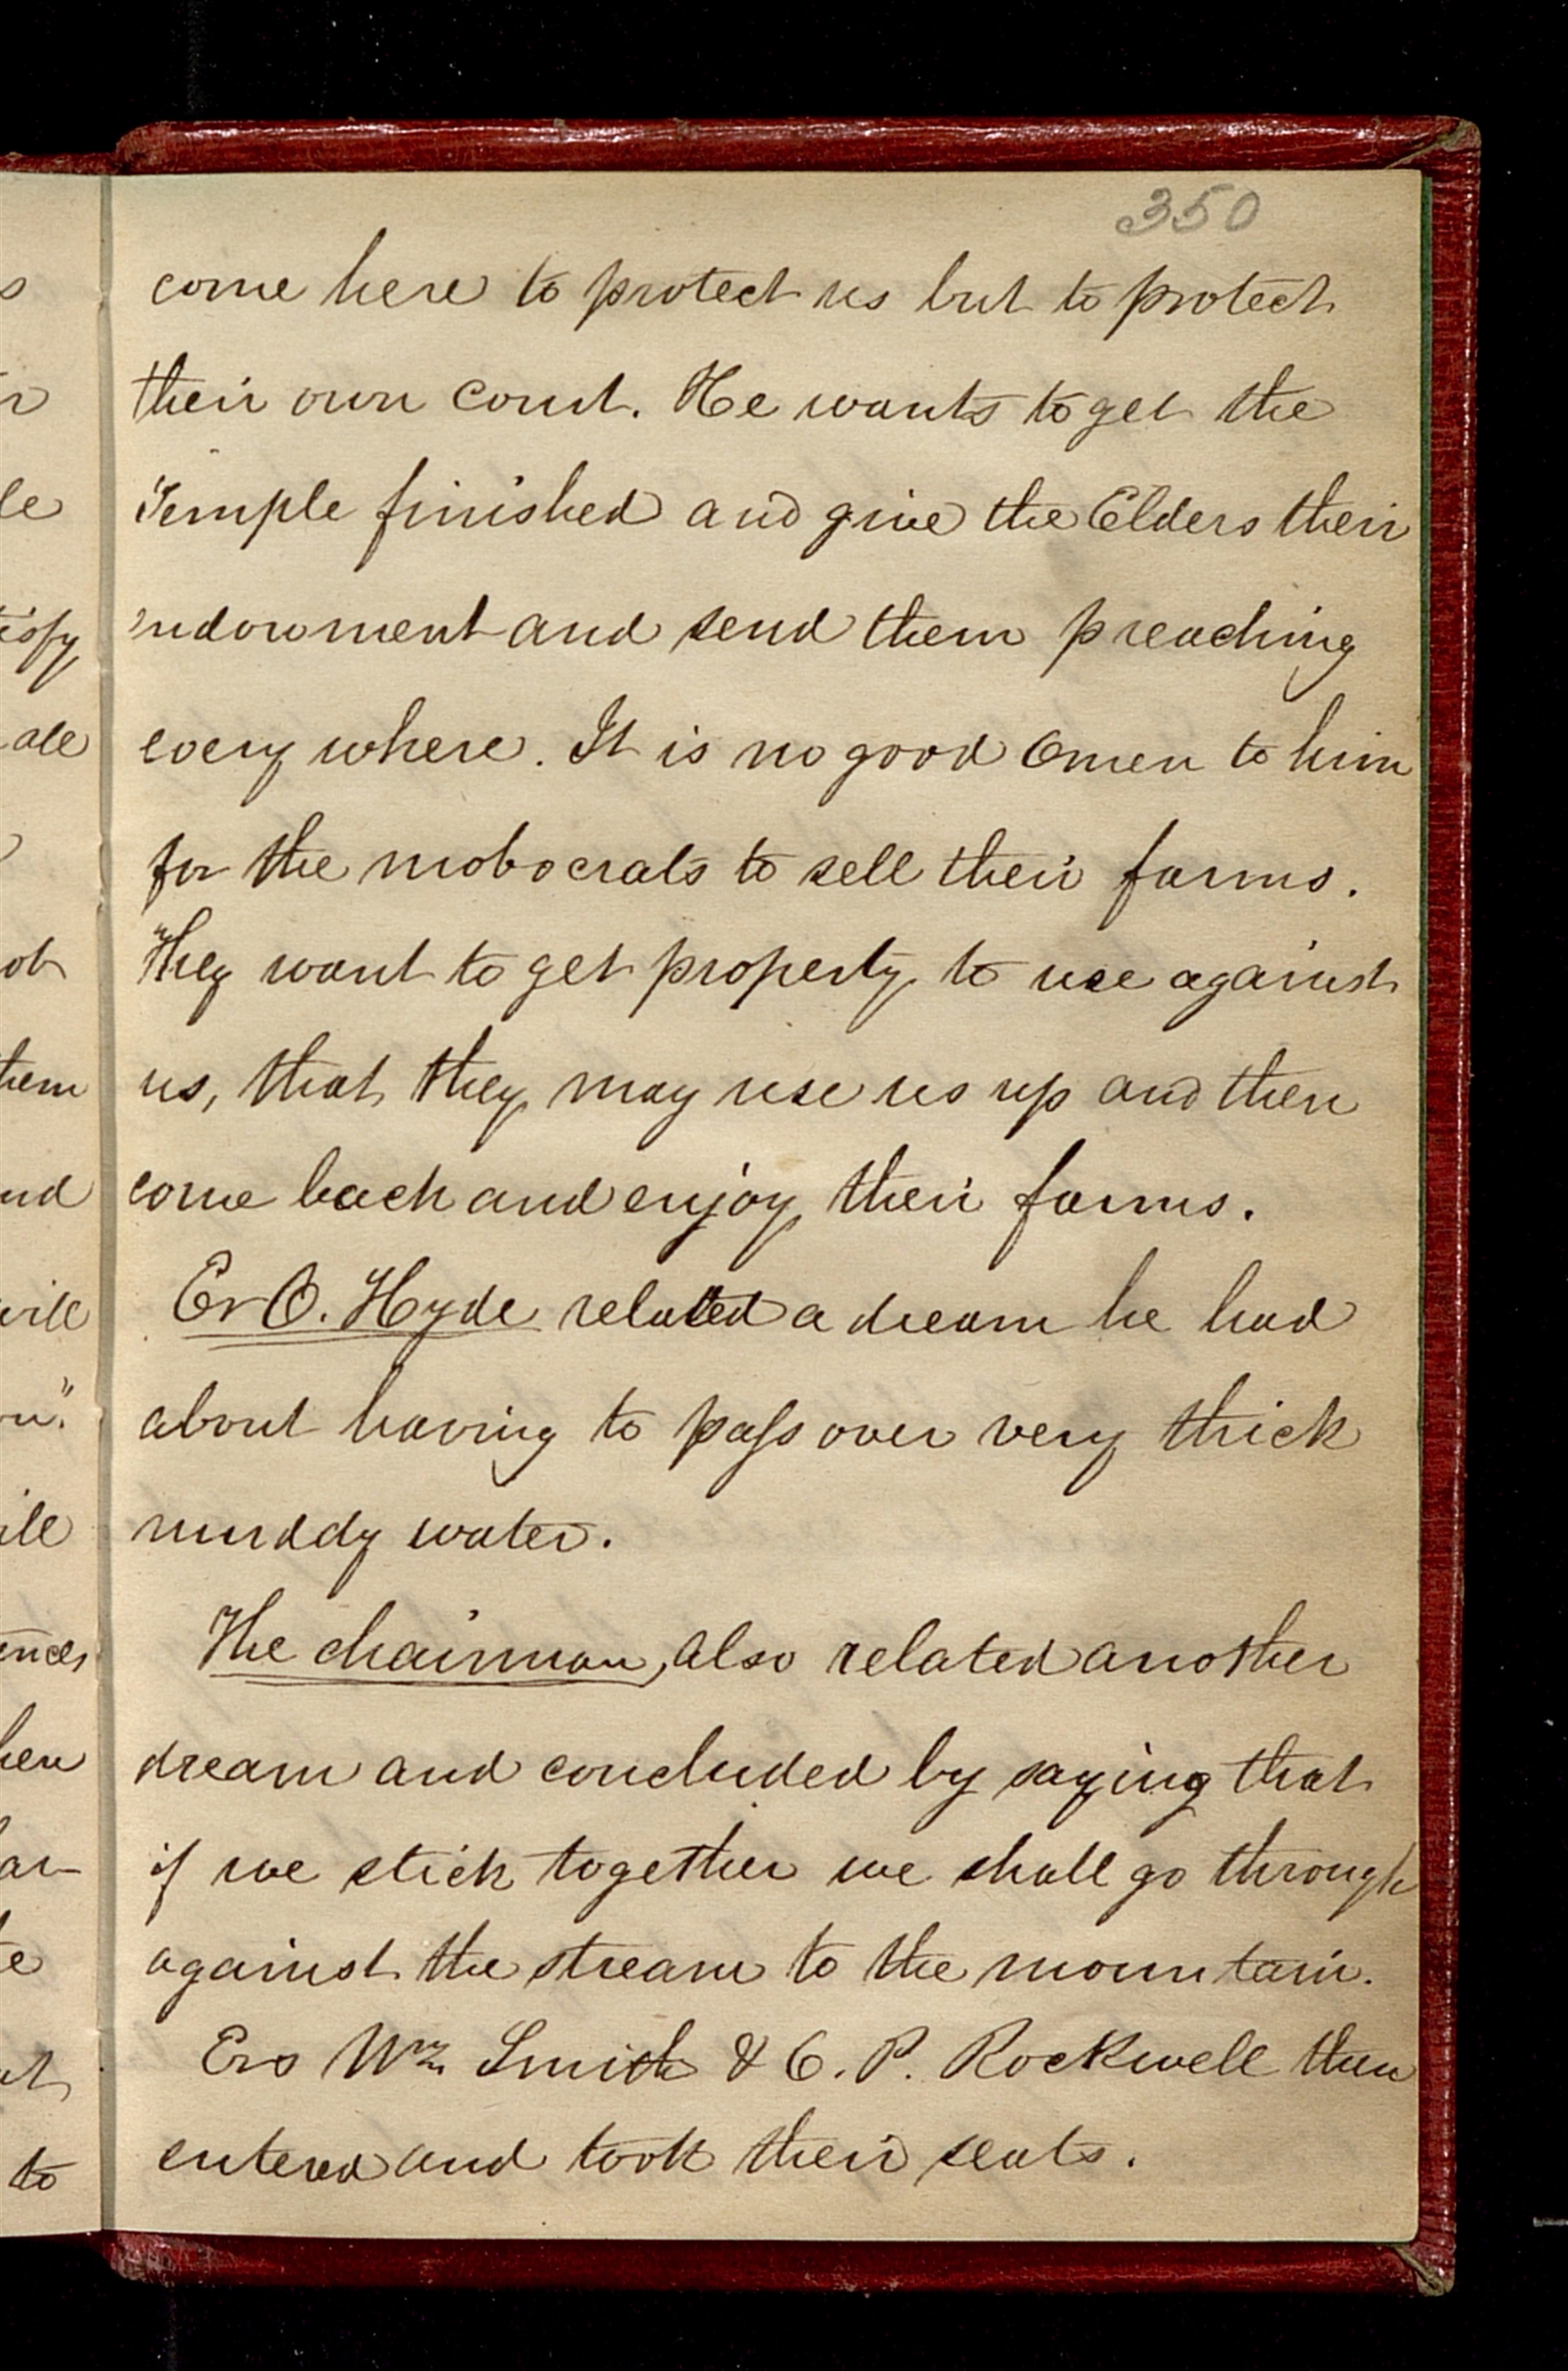 350
come here to protect us but to protect
their own court. He wants to get the
Temple finished and give the Elders their
indowment and send them preaching
every where. It is no good Omen to him
for the mobocrats to sell their farms.
They want to get property to use against
us, that they may use us up and then
come back and enjoy their farms.
Er O. Hyde related a dream he had
about having to pass over very thick
muddy water.
The chairman, also related another
dream and concluded by saying that
if we stick together we shall go through
against the stream to the mountain.
Ers Wm Smith & O. P. Rockwell then
entered and took their seats.